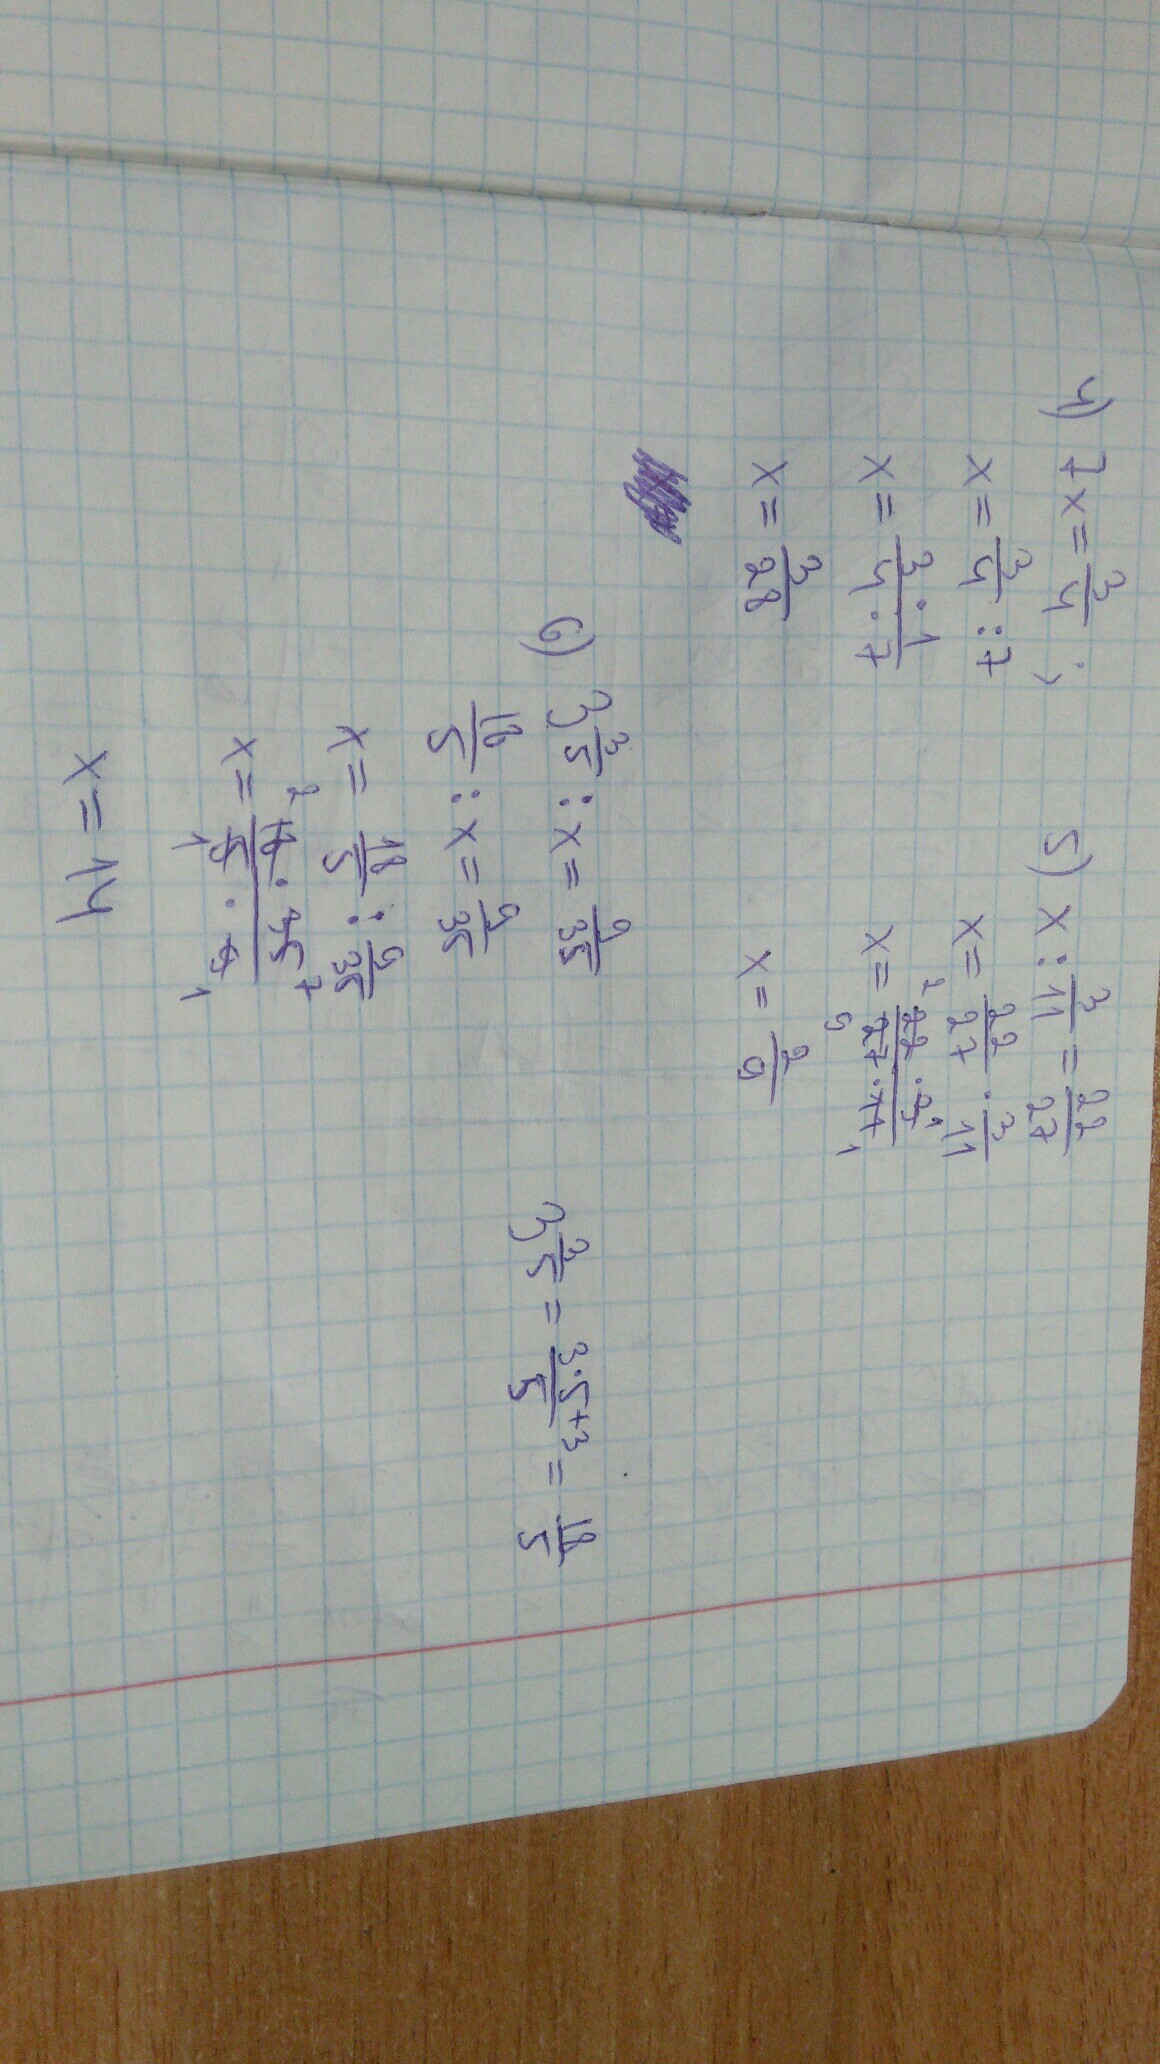 4) 7x = 3/4 ;
x = 3/4 : 7
x = 3/4 · 1/7
x = 3/28
5) x : 3/11 = 22/27
x = 22/27 · 3/11
x = 22 · 3 / 27 · 11
2 1 9 1
x = 2/9
6) 3 3/5 : x = 9/35
18/5 : x = 9/35
x = 18/5 : 9/35
x = 18 · 35 / 5 · 9
2 7 1 1
x = 14
3 3/5 = 3·5+3 / 5 = 18/5